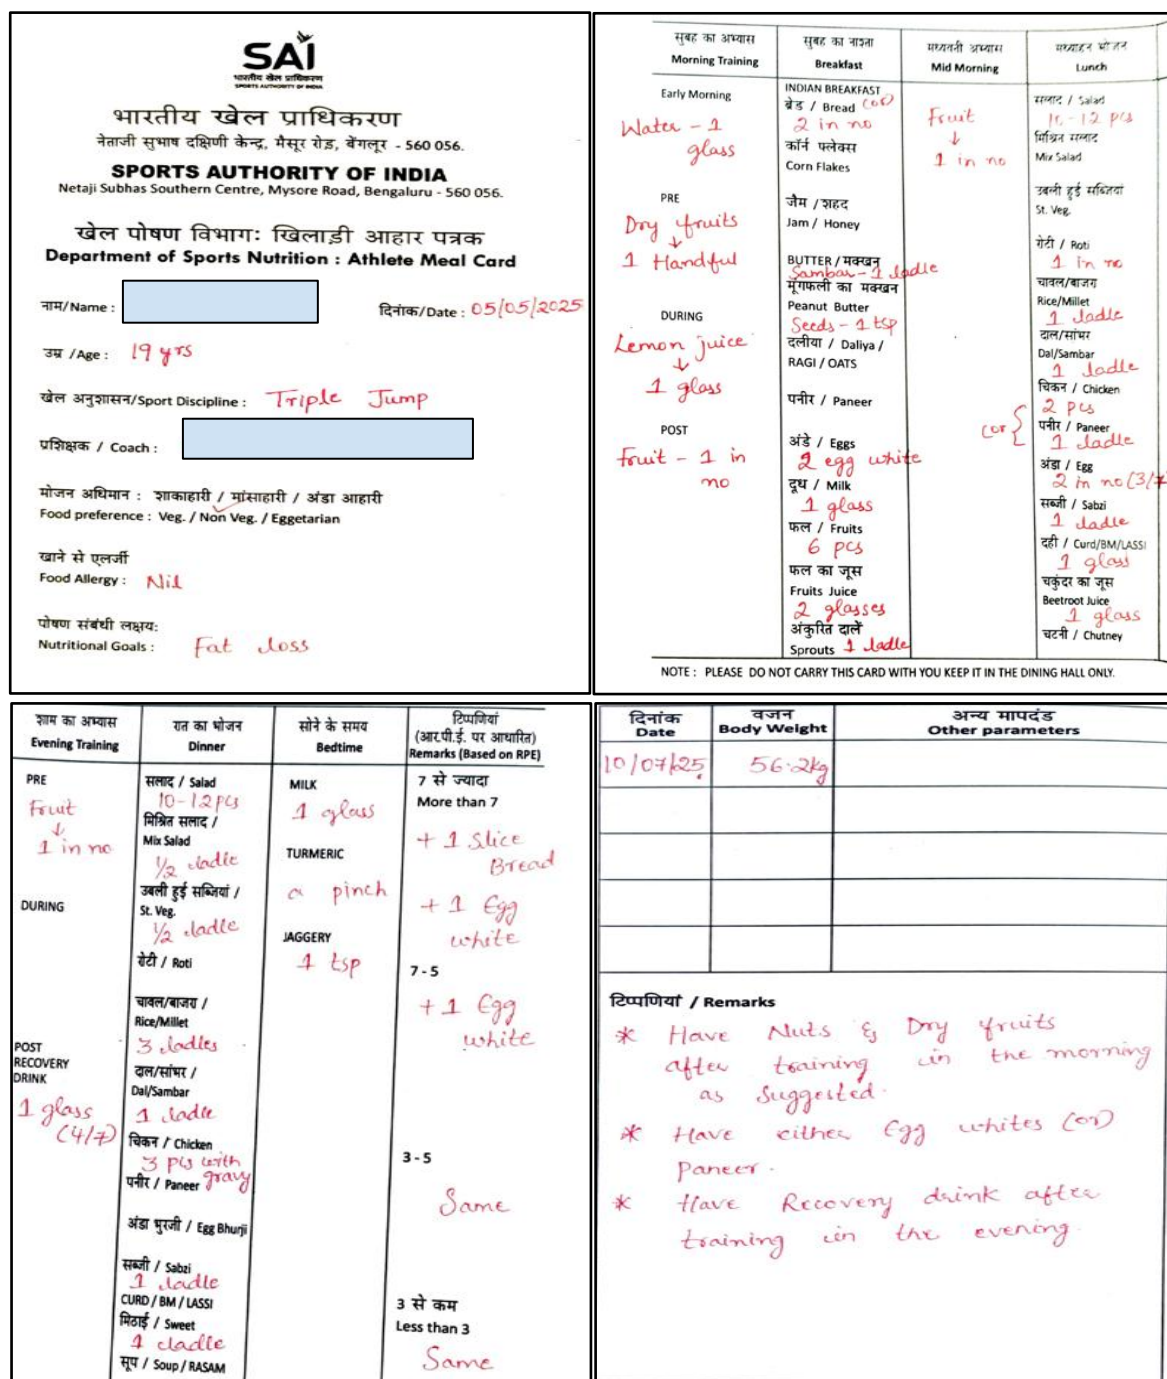 SAI
भारतीय खेल प्राधिकरण
SPORTS AUTHORITY OF INDIA
भारतीय खेल प्राधिकरण
नेताजी सुभाष दक्षिणी केन्द्र, मैसूर रोड़, बेंगलूर - 560 056.
SPORTS AUTHORITY OF INDIA
Netaji Subhas Southern Centre, Mysore Road, Bengaluru - 560 056.
खेल पोषण विभागः खिलाड़ी आहार पत्रक
Department of Sports Nutrition : Athlete Meal Card
नाम/Name :
दिनांक/Date : 05/05/2025
उम्र /Age : 19 yrs
खेल अनुशासन/Sport Discipline : Triple Jump
प्रशिक्षक / Coach :
भोजन अधिमान : शाकाहारी / मांसाहारी / अंडा आहारी
Food preference : Veg. / Non Veg. / Eggetarian
खाने से एलर्जी
Food Allergy : Nil
पोषण संबंधी लक्षय:
Nutritional Goals : Fat loss
सुबह का अभ्यास
Morning Training
Early Morning
Water - 1
glass
PRE
Dry fruits
↓
1 Handful
DURING
Lemon juice
↓
1 glass
POST
Fruit - 1 in
no
सुबह का नाश्ता
Breakfast
INDIAN BREAKFAST
ब्रेड / Bread (or)
2 in no
कॉर्न फ्लेक्स
Corn Flakes
जैम /शहद
Jam / Honey
BUTTER / मक्खन
Sambar - 1 ladle
मूंगफली का मक्खन
Peanut Butter
Seeds - 1 tsp
दलीया / Daliya /
RAGI / OATS
पनीर / Paneer
अंडे / Eggs
2 egg white
दूध / Milk
1 glass
फल / Fruits
6 pcs
फल का जूस
Fruits Juice
2 glasses
अंकुरित दालें
Sprouts 1 ladle
मध्यवर्ती अभ्यास
Mid Morning
Fruit
↓
1 in no
मध्याहन भोजन
Lunch
सलाद / Salad
10-12 pcs
मिश्रित सलाद
Mix Salad
उबली हुई सब्जियां
St. Veg.
रोटी / Roti
1 in no
चावल/बाजरा
Rice/Millet
1 ladle
दाल/सांभर
Dal/Sambar
1 ladle
चिकन / Chicken
2 pcs
(or {
पनीर / Paneer
1 ladle
अंडा / Egg
2 in no (3/7
सब्जी / Sabzi
1 ladle
दही / Curd/BM/LASSI
1 glass
चकुंदर का जूस
Beetroot Juice
1 glass
चटनी / Chutney
NOTE : PLEASE DO NOT CARRY THIS CARD WITH YOU KEEP IT IN THE DINING HALL ONLY.
शाम का अभ्यास
Evening Training
PRE
Fruit
↓
1 in no
DURING
POST
RECOVERY
DRINK
1 glass
(4/7)
रात का भोजन
Dinner
सलाद / Salad
10-12 pcs
मिश्रित सलाद /
Mix Salad
1/2 ladle
उबली हुई सब्जियां /
St. Veg.
1/2 ladle
रोटी / Roti
चावल/बाजरा /
Rice/Millet
3 ladles
दाल/सांभर /
Dal/Sambar
1 ladle
चिकन / Chicken
3 pcs with
पनीर / Paneer gravy
अंडा भुरजी / Egg Bhurji
सब्जी / Sabzi
1 ladle
CURD / BM / LASSI
मिठाई / Sweet
1 ladle
सूप / Soup / RASAM
सोने के समय
Bedtime
MILK
1 glass
TURMERIC
a pinch
JAGGERY
1 tsp
टिप्पणियां
(आर.पी.ई. पर आधारित)
Remarks (Based on RPE)
7 से ज्यादा
More than 7
+ 1 Slice
Bread
+ 1 Egg
white
7 - 5
+ 1 Egg
white
3 - 5
Same
3 से कम
Less than 3
Same
दिनांक
Date
वजन
Body Weight
अन्य मापदंड
Other parameters
10/07/25. 56.2kg
टिप्पणियां / Remarks
* Have Nuts & Dry fruits
after training in the morning
as suggested.
* Have either Egg whites (or)
Paneer.
* Have Recovery drink after
training in the evening.